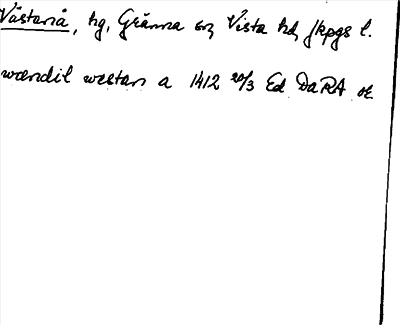 Västanå, hg, Gränna sn, Vista hd, Jkpgs l.
wændil westan a 1412 20/3 Ed DaRA or